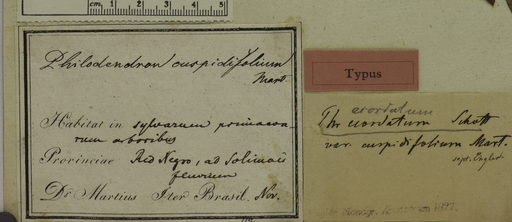 cm 1 2 3 4 5
Philodendron cuspidifolium
Mart.
Habitat in sylvarum primaevarum
arboribus
Provinciae Rio Negro, ad Solimoës
fluvium
Dr. Martius Iter Brasil. Nov.
Typus
ecordatum
Ph. ecordatum Schott
var. cuspidifolium Mart.
sept. Engler.